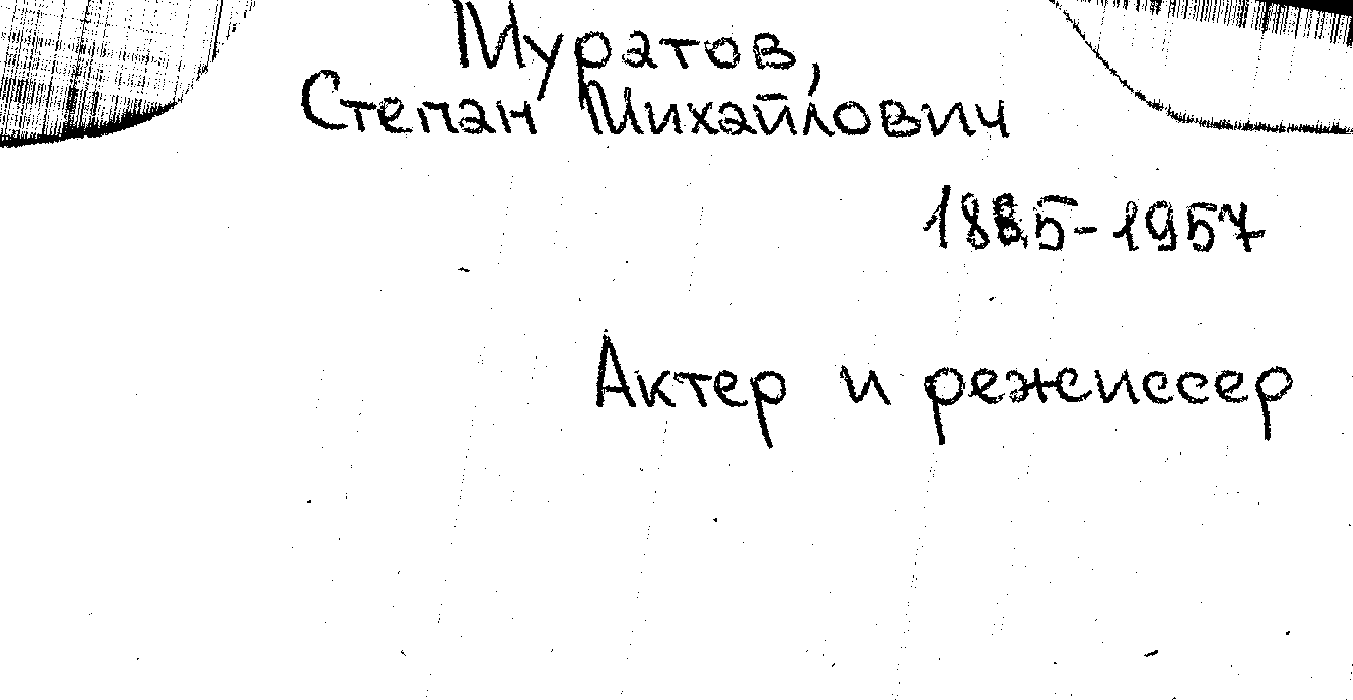 Муратов,
Степан Михайлович
1885-1957
Актер и режиссер